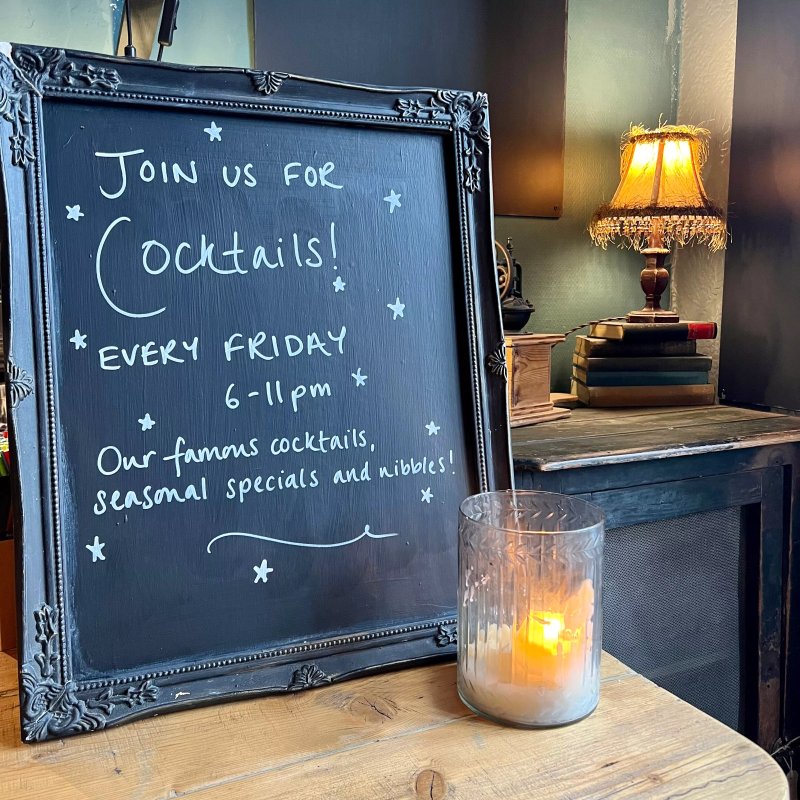 JOIN US FOR
Cocktails!
EVERY FRIDAY
6-11pm
Our famous cocktails,
seasonal specials and nibbles!